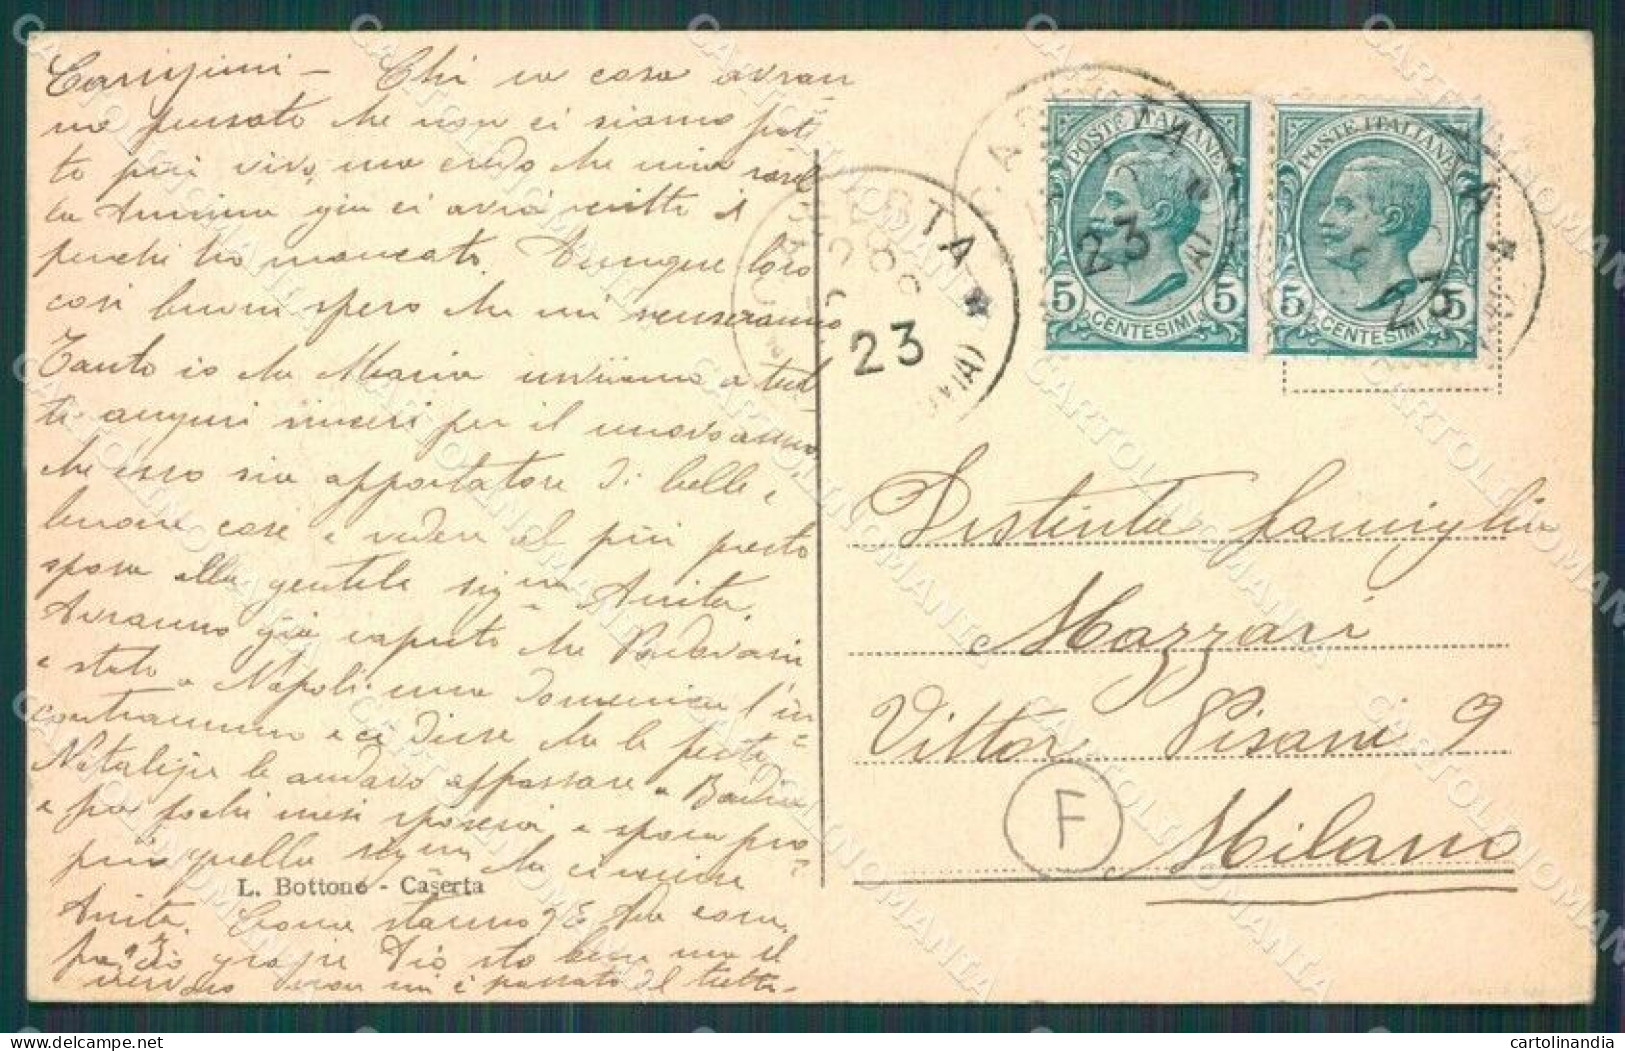 Carissimi - Chi sa cosa avran=
no pensato che non ci siamo potu
to più vivo, ma credo che mia sorel
la Annina già ci avrà scritto il
perchè ho mancato. Dunque loro
così buoni spero che mi scuseranno
Tanto io che Maria inviiamo a tut=
ti auguri sinceri per il nuovo anno,
che esso sia apportatore di belle e
buone cose e vedere al più presto
sposa alla gentile sig.na Anita.
Avranno già saputo che Padovani
è stato a Napoli una domenica l'in=
contrammo e ci disse che le feste
Natalizie le andavo a passare a
e fra pochi mesi sposerà, e sposa pro=
prio quella sig.na che ci scrisse
L. Bottone - Caserta
Anita. Come stanno? E la
grazie Dio sto bene ma il
nervoso non mi è passato del tutto-
POSTE ITALIANE
5 CENTESIMI 5
POSTE ITALIANE
5 CENTESIMI 5
CASERTA
23
Distinta famiglia
Mazzari
Vittor Pisani 9
Milano
F
CARTOLINOMANIA
cartolinandia